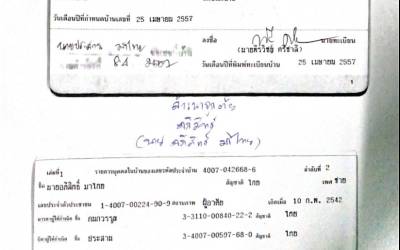 วันเดือนปีที่กำหนดบ้านเลขที่ 25 เมษายน 2557
ลงชื่อ นายทะเบียน
(นายศิริวิชญ์ ศรีชาลี)
วันเดือนปีที่พิมพ์ทะเบียนบ้าน 25 เมษายน 2557
สำเนาถูกต้อง
อภิสิทธิ์
(นาย อภิสิทธิ์ มาไกย)
เล่มที่ 1 รายการบุคคลในบ้านของเลขรหัสประจำบ้าน 4007-042668-6 ลำดับที่ 2
ชื่อ นายอภิสิทธิ์ มาไกย สัญชาติ ไทย เพศ ชาย
เลขประจำตัวประชาชน 1-4007-00224-90-9 สถานภาพ ผู้อาศัย เกิดเมื่อ 10 ก.พ. 2542
มารดาผู้ให้กำเนิด ชื่อ กนกวรรณ 3-3110-00840-22-2 สัญชาติ ไทย
บิดาผู้ให้กำเนิด ชื่อ ประสาน 3-4007-00597-68-0 สัญชาติ ไทย